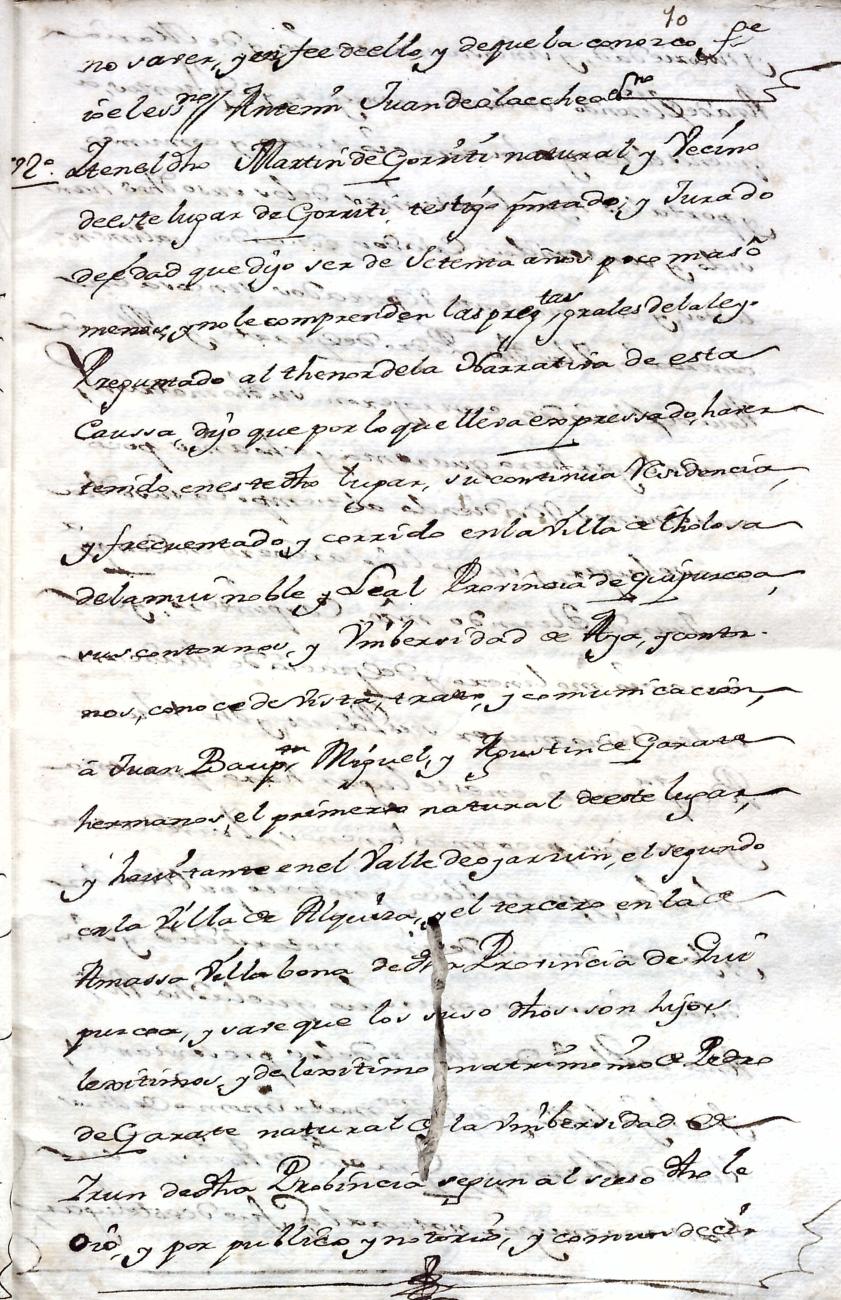 10
no saver, y en fee de ello, y de que la conozco, fe
io el essno // Antemi Juan de olaechea essno
2º. Iten el dho Martin de Gorriti natural y Vecino
de este lugar de Gorriti, testigo pntado, y Jurado
de edad que dijo ser de Setenta años poco mas ô
menos, y no le comprenden las pregtas grales de la ley.
Preguntado al thenor de la Narrativa de esta
Caussa, dijo que por lo que lleva expressado, haver
tenido en este dho lugar, su continua Residencia,
y frecuentado, y corrido en la Villa de tholosa
de la mui noble y Leal Provincia de guipuzcoa,
sus contornos, y Vnibersidad de Aya, y contor-
nos, conoce de vista, trato, y comunicación,
â Juan Bauptta Miguel, y Agustin de Garate
hermanos, el primero natural de este lugar,
y havitante en el Valle de ojarzun, el segundo
en la Villa de Alquiza, y el tercero en la de
Amassa Villabona de dha Provincia de Gui
puzcoa, y save que los suso dhos son hijos
lexitimos, y de lexitimo matrimonio de Pedro
de Garate natural de la Vnibersidad de
Irun de dha Probincia segun al suso dho le
Oiô, y por publico y notorio, y comun decir